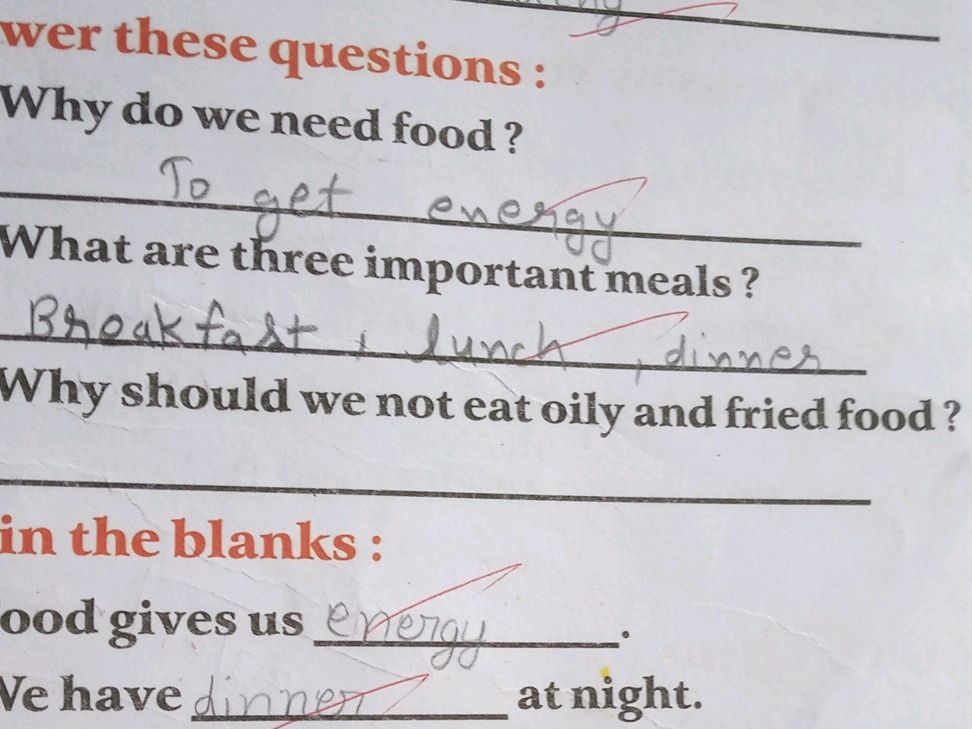 wer these questions :
Why do we need food ?
To get energy
What are three important meals ?
Breakfast , lunch , dinner
Why should we not eat oily and fried food ?
in the blanks :
ood gives us energy.
We have dinner at night.